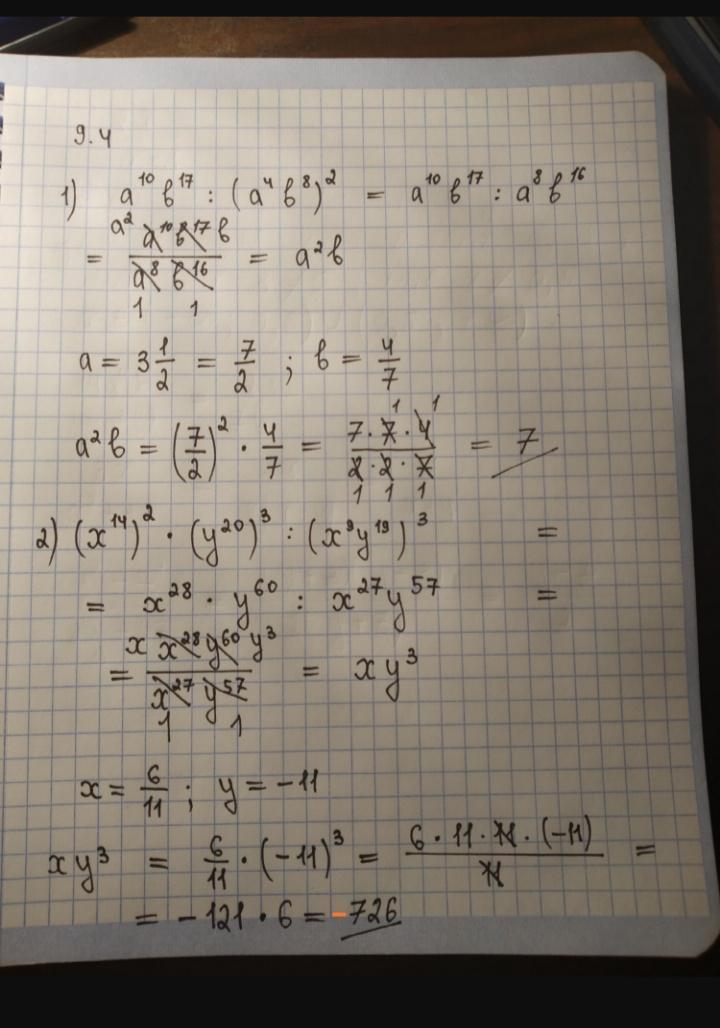 9.4
1) a¹⁰b¹⁷ : (a⁴b⁸)² = a¹⁰b¹⁷ : a⁸b¹⁶
= a² a¹⁰b¹⁷ b / a⁸ b¹⁶ = a²b
1 1
a = 3 1/2 = 7/2 ; b = 4/7
a²b = (7/2)² · 4/7 = 7 · 7 · 4 / 2 · 2 · 7 = 7
1 1 1 1 1
2) (x¹⁴)² · (y²⁰)³ : (x⁹y¹⁹)³ =
= x²⁸ · y⁶⁰ : x²⁷y⁵⁷ =
= x x²⁸ y⁶⁰ y³ / x²⁷ y⁵⁷ = xy³
1 1
x = 6/11 ; y = -11
xy³ = 6/11 · (-11)³ = 6 · 11 · 11 · (-11) / 11 =
= -121 · 6 = -726